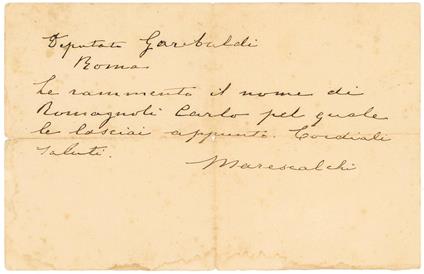 Deputato Garibaldi
Roma
Le rammento il nome di
Romagnoli Carlo pel quale
le lasciai appunto. Cordiali
saluti.
Marescalchi